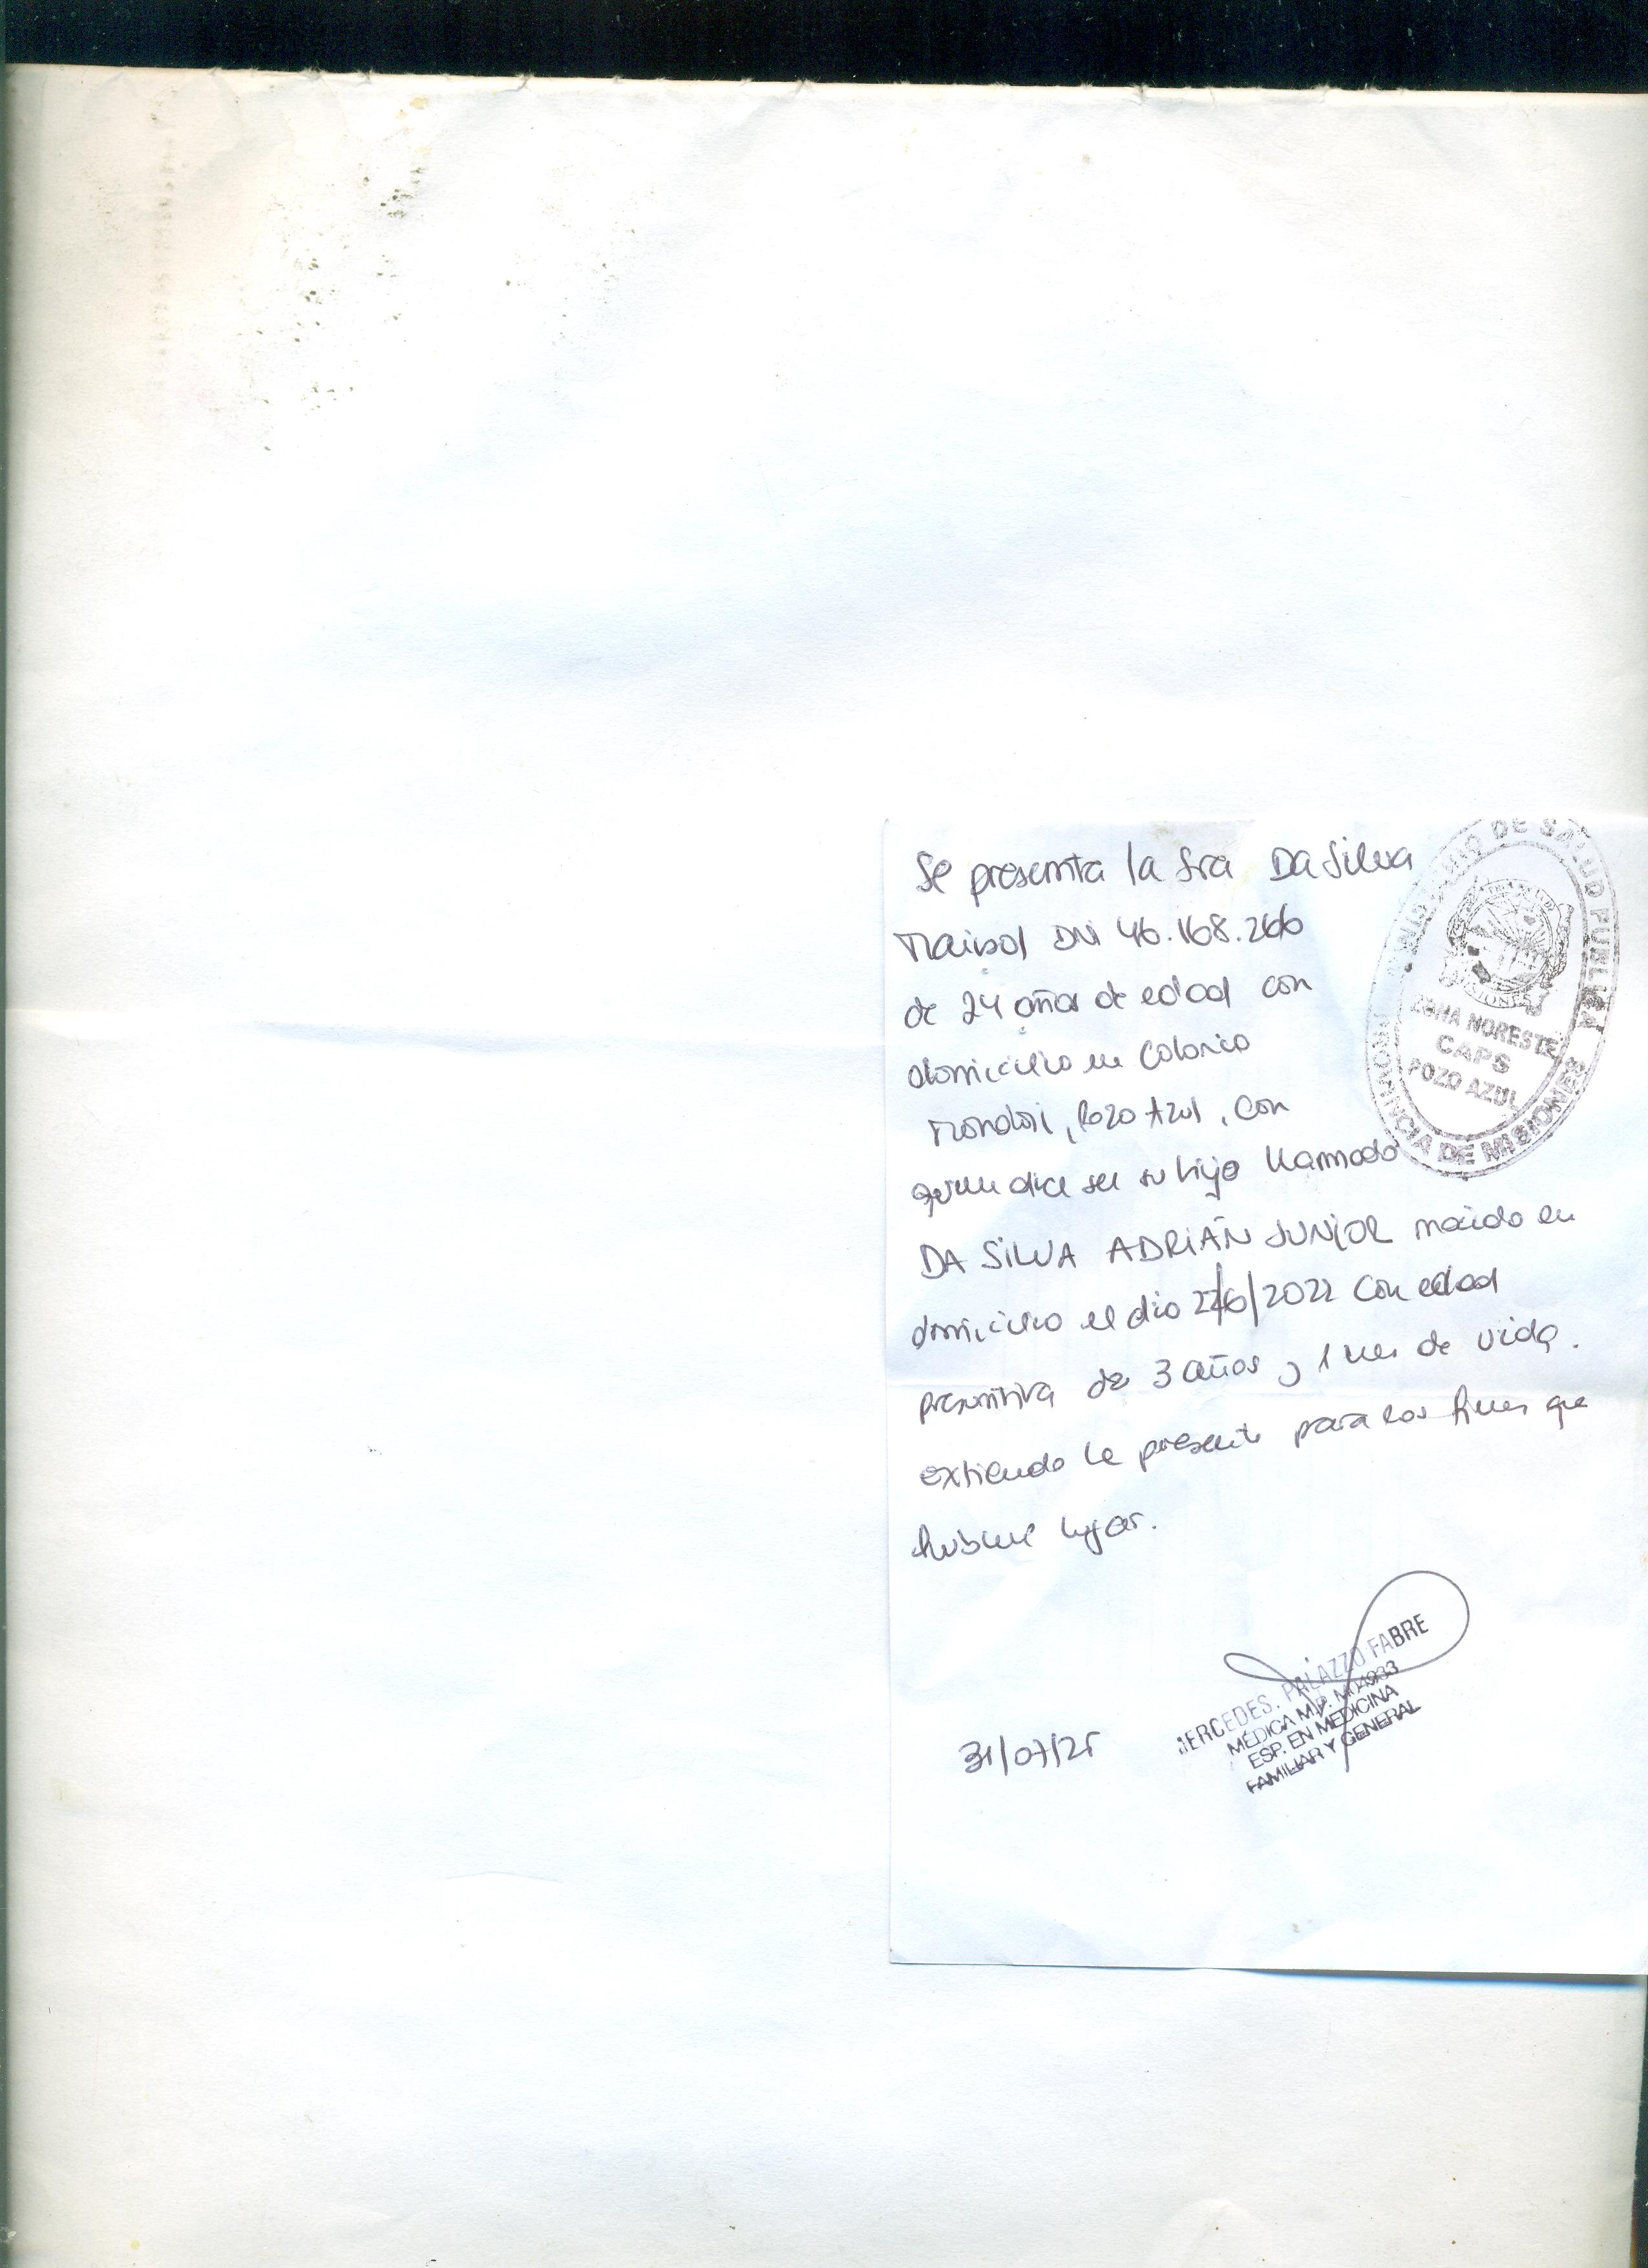 Se presenta la Sra Da Silva
Marisol DNI 46.168.266
de 24 años de edad con
domicilio en Colonia
Mondori, Pozo Azul, con
quien dice ser su hijo llamado
DA SILVA ADRIÁN JUNIOR nacido en
domicilio el dia 27/6/2022 con edad
presuntiva de 3 años y 1 mes de vida.
extiendo la presente para los fines que
hubiere lugar.
31/07/25
MINISTERIO DE SALUD PUBLICA
ZONA NORESTE
CAPS
POZO AZUL
PROVINCIA DE MISIONES
MERCEDES. PALAZZO FABRE
MÉDICA M.P. Nº 4933
ESP. EN MEDICINA
FAMILIAR Y GENERAL